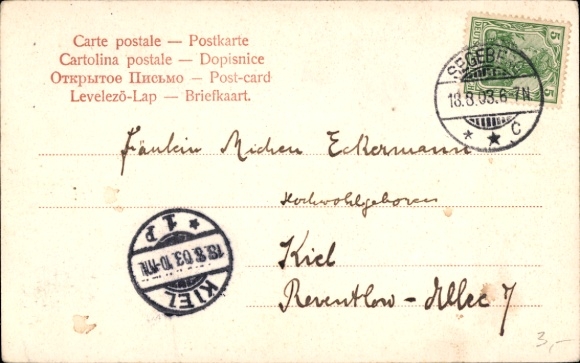 Carte postale — Postkarte
Cartolina postale — Dopisnice
Открытое Письмо — Post-card
Levelező-Lap — Briefkaart.
5 5
SEGEBERG
18.8.03.6-7N
* * C
Fräulein Michen Eckermann
Hochwohlgeboren
Kiel
Reventlow-Allee 7
KIEL
18.8.03.10-11N.
* 1 P
3,-